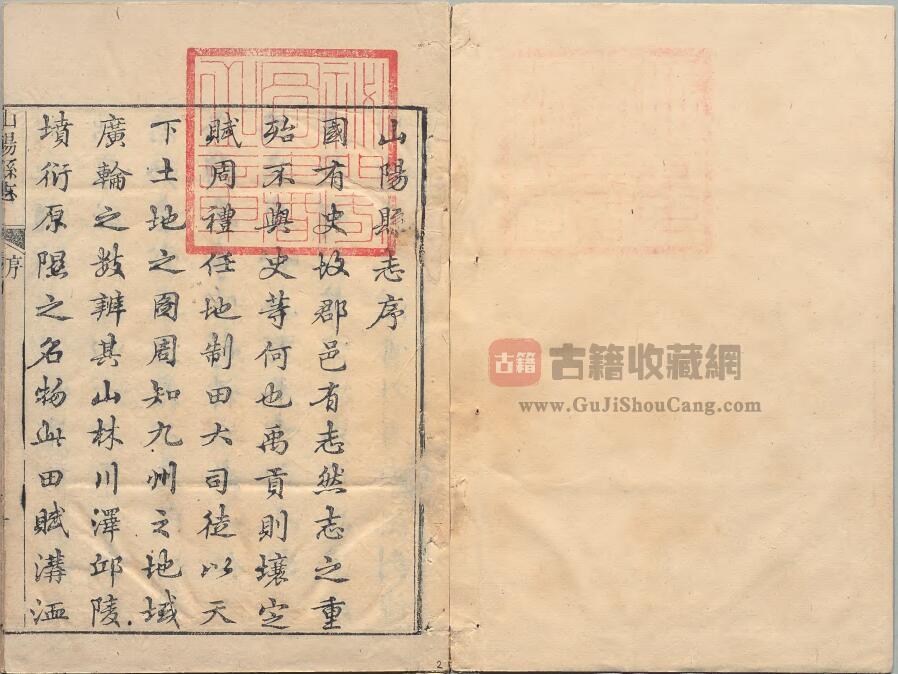 山陽縣志序
國有史故郡邑有志然志之重
殆不與史等何也禹貢則壤定
賦周禮任地制田大司徒以天
下土地之圖周知九州之地域
廣輪之數辨其山林川澤邱陵
墳衍原隰之名物此田賦溝洫
山陽縣志
序
古籍
古籍收藏網
www.GuJiShouCang.com
2